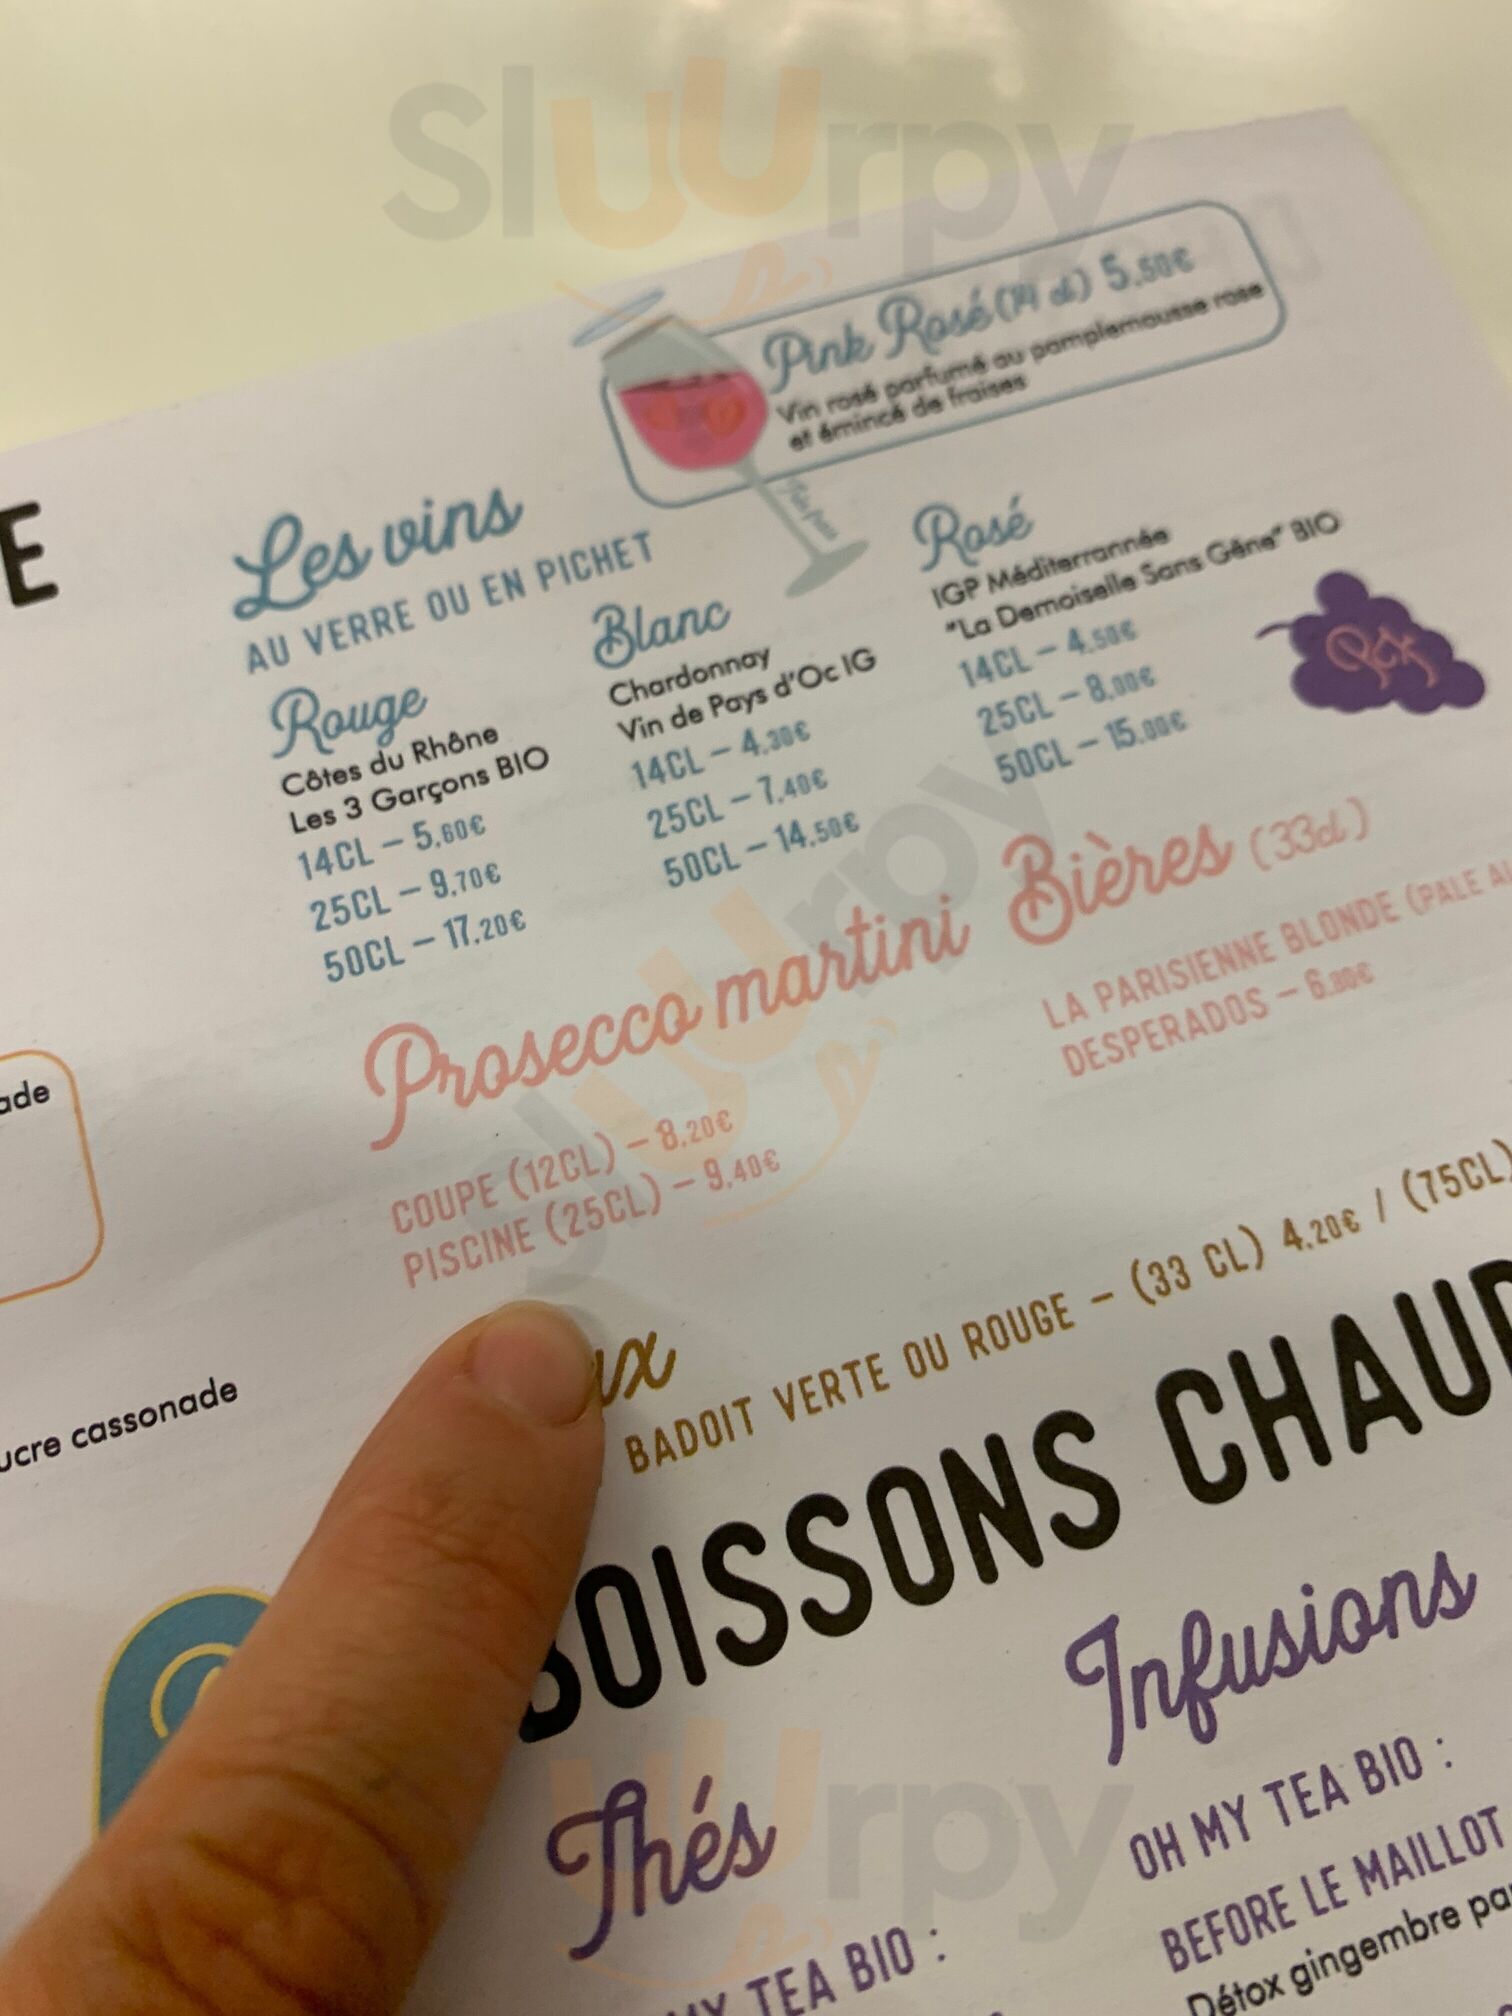 Sluurpy
Pink Rosé (14 cl) 5,50€
Vin rosé parfumé au pamplemousse rose
et émincé de fraises
E
Les vins
AU VERRE OU EN PICHET
Rouge
Côtes du Rhône
Les 3 Garçons BIO
14CL – 5,60€
25CL – 9,70€
50CL – 17,20€
Blanc
Chardonnay
Vin de Pays d'Oc IG
14CL – 4,30€
25CL – 7,40€
50CL – 14,50€
Rosé
IGP Méditerrannée
"La Demoiselle Sans Gêne" BIO
14CL – 4,50€
25CL – 8,00€
50CL – 15,00€
Sluurpy
Prosecco martini
COUPE (12CL) – 8,20€
PISCINE (25CL) – 9,40€
Bières (33cl)
LA PARISIENNE BLONDE (PALE AL
DESPERADOS – 6,80€
ade
ucre cassonade
ux
BADOIT VERTE OU ROUGE – (33 CL) 4,20€ / (75CL)
BOISSONS CHAUD
Thés
MY TEA BIO :
Infusions
OH MY TEA BIO :
BEFORE LE MAILLOT
Détox gingembre pa
uurpy